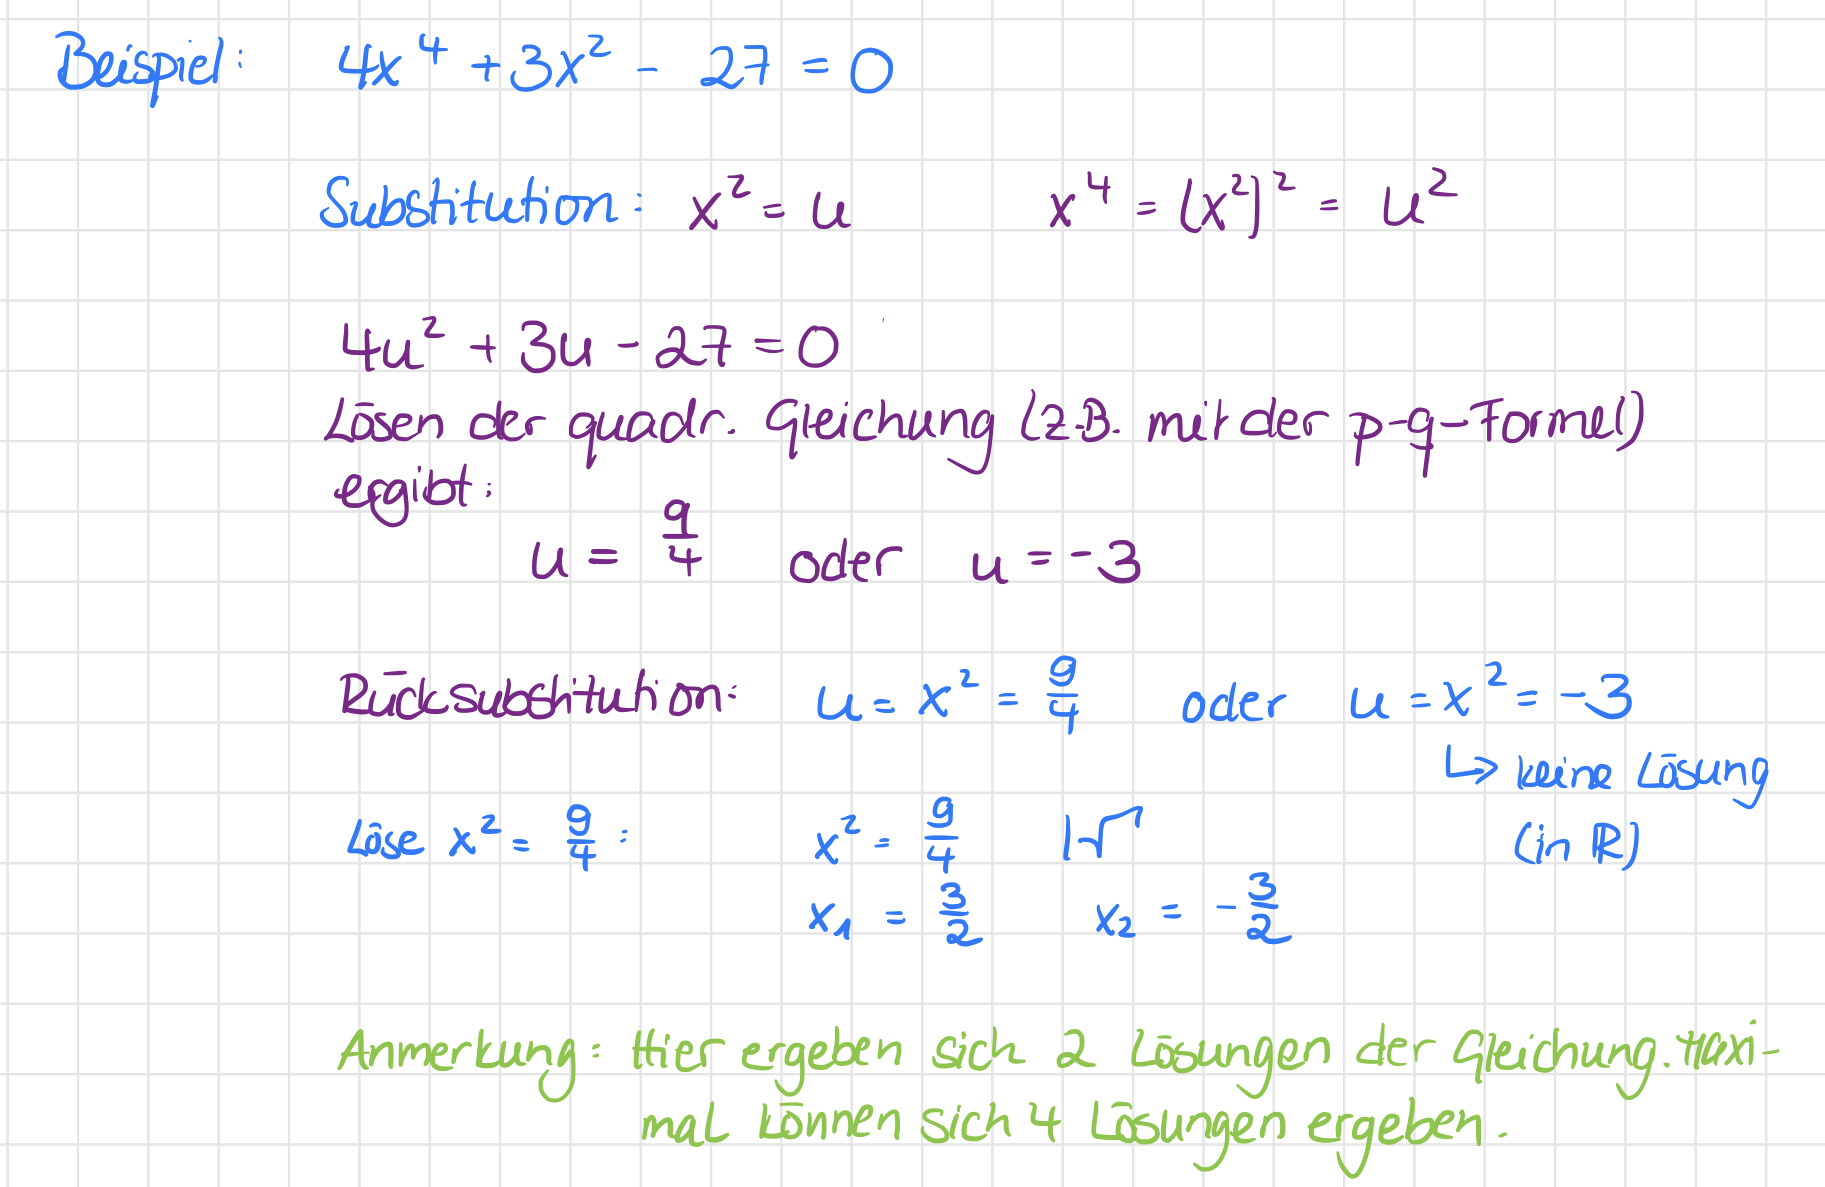 Beispiel: 4x⁴ + 3x² - 27 = 0
Substitution: x² = u x⁴ = (x²)² = u²
4u² + 3u - 27 = 0
Lösen der quadr. Gleichung (z.B. mit der p-q-Formel)
ergibt:
u = 9/4 oder u = -3
Rücksubstitution: u = x² = 9/4 oder u = x² = -3
↳ keine Lösung
(in ℝ)
Löse x² = 9/4 : x² = 9/4 |√
x₁ = 3/2 x₂ = -3/2
Anmerkung: Hier ergeben sich 2 Lösungen der Gleichung. Maxi-
mal können sich 4 Lösungen ergeben.